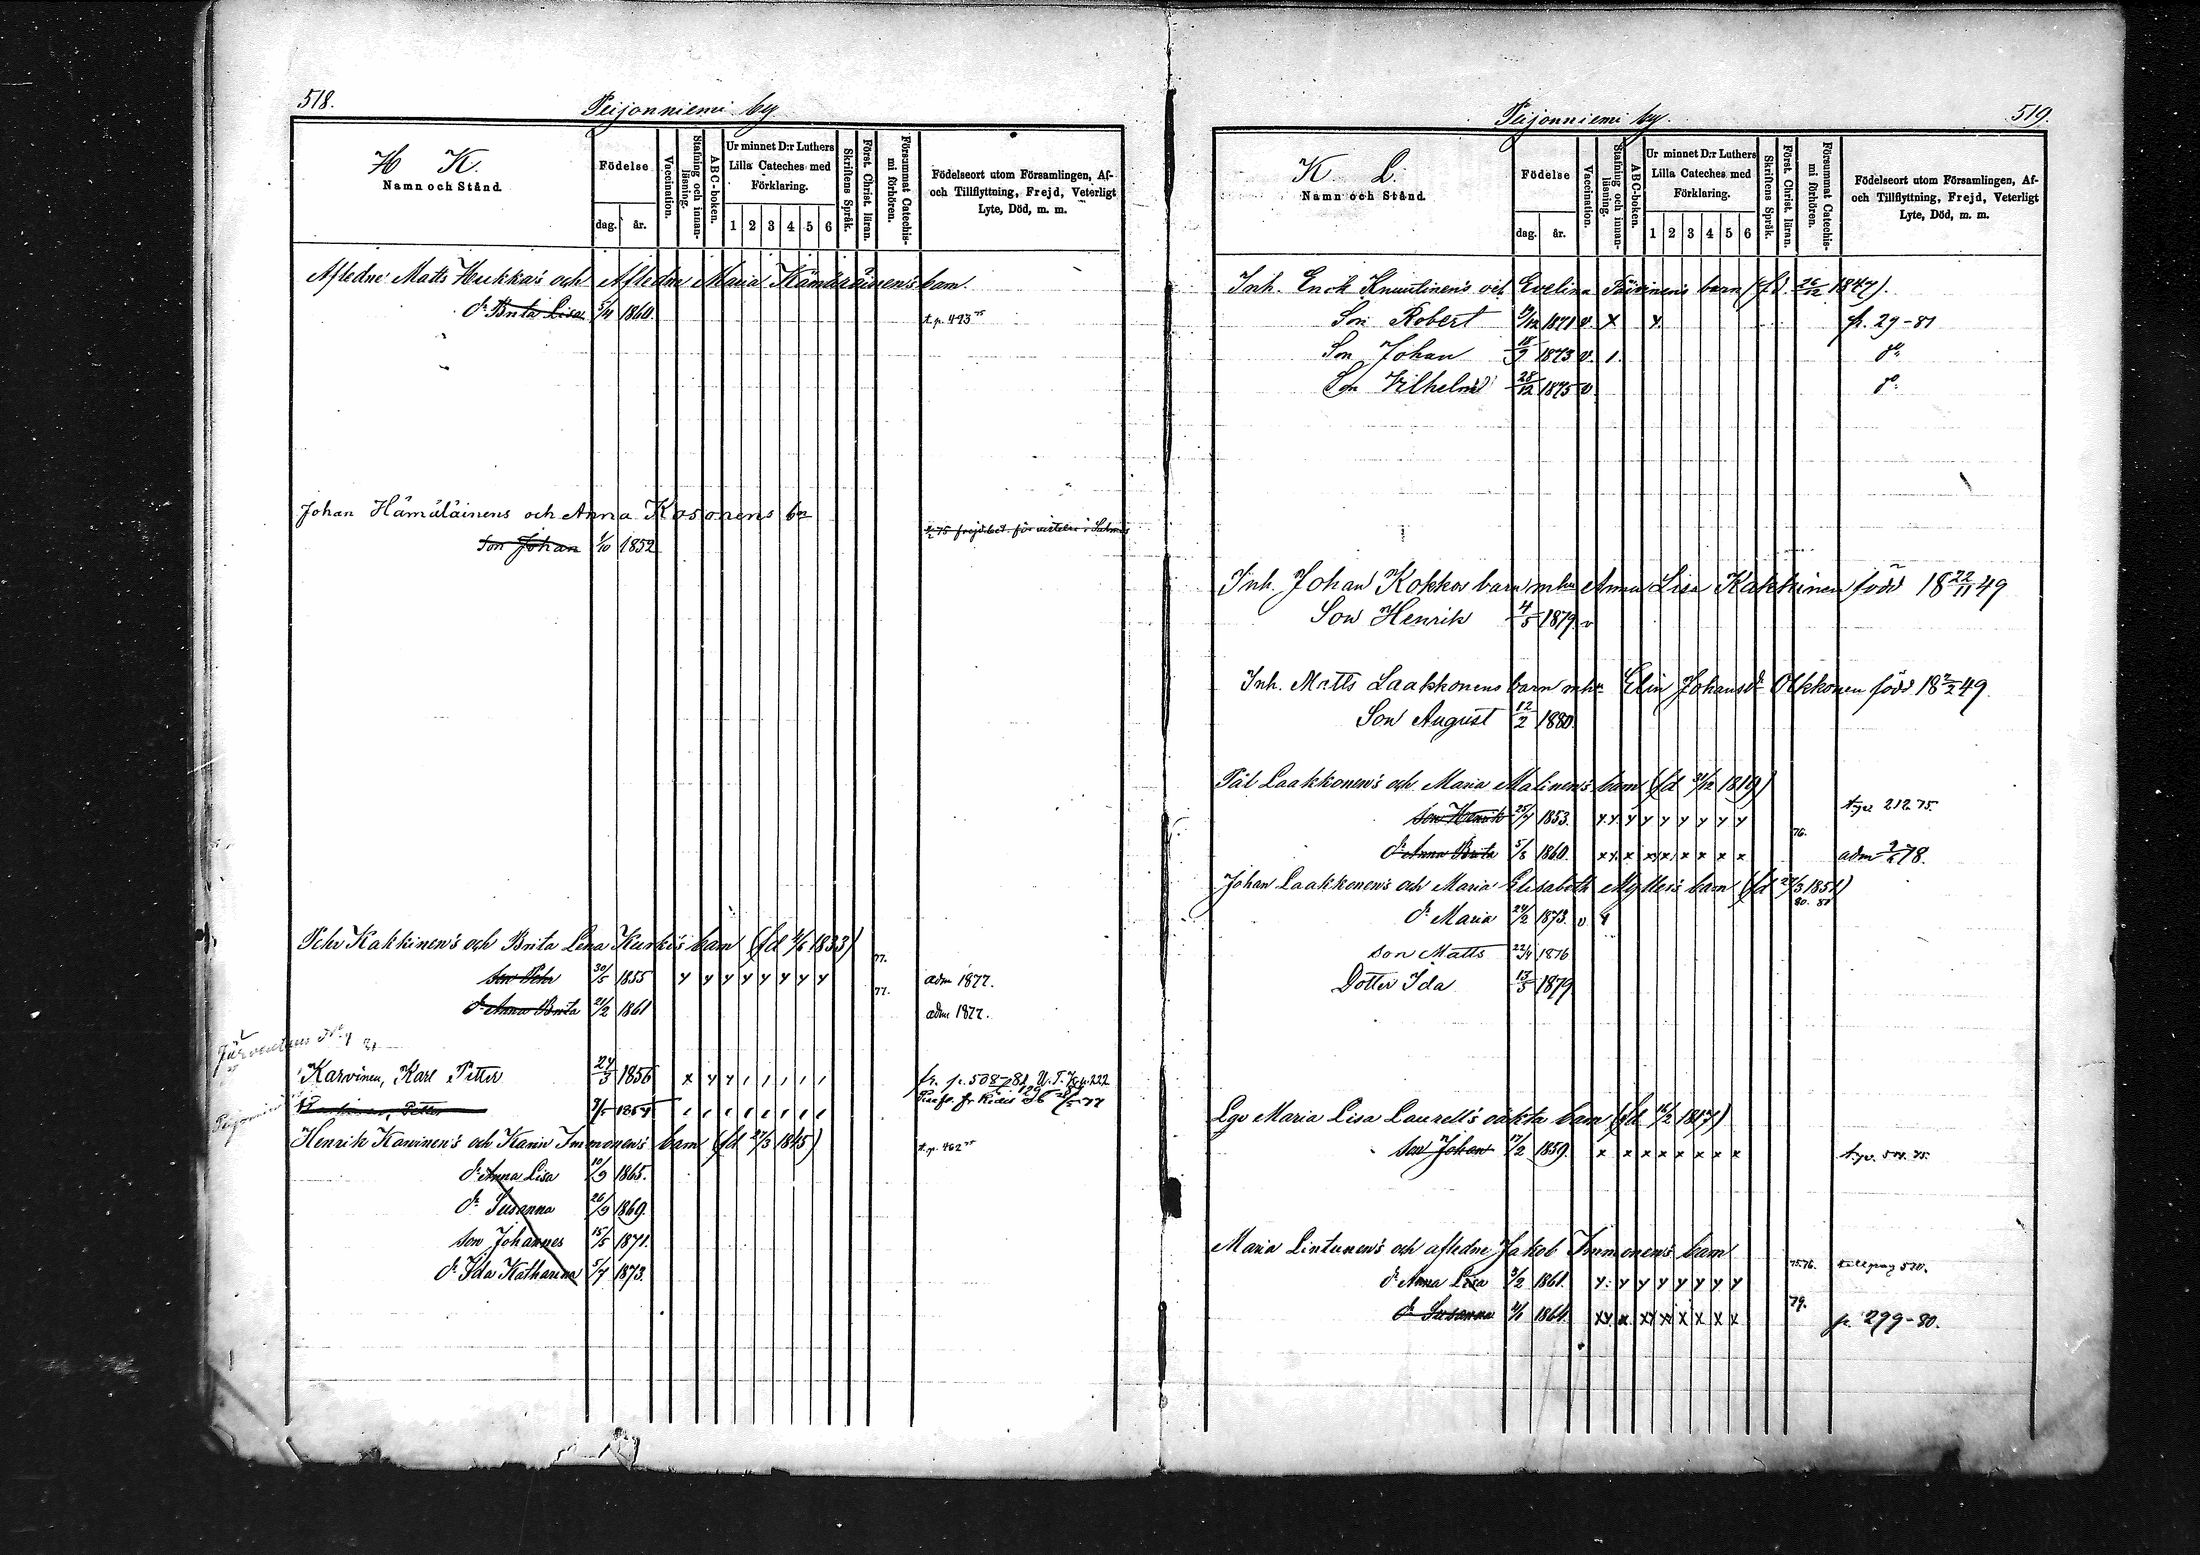 518.
Peijonniemi by
H K.
Namn och Stånd.
Födelse
dag. år.
Vaccination.
Stafning och innanläsning.
ABC-boken.
Ur minnet D:r Luthers Lilla Cateches med Förklaring.
1 2 3 4 5 6
Skriftens Språk.
Först. Christ. läran.
Försummat Catechismi förhören.
Födelseort utom Församlingen, Af- och Tillflyttning, Frejd, Veterligt Lyte, Död, m. m.
Afledne Matts Hukka's och Afledna Maria Hämäläinen's barn.
dr Brita Lisa 1860. t. p. 493 75
Johan Hämäläinens och Anna Kosonens bn
75 frejdebet. för vistelse i
Son Johan 1/10 1852
Petr Kakkinen's och Brita Lena Kurki's barn (fd 1833)
77.
son Petr 30/5 1855 y y y y y y y y adm 1877.
77.
dr Anna Brita 21/2 1861 adm 1877.
Karvinen, Karl Petter 24/3 1856 x y y / / / / / fr. p. 508-81
Petter 1854
Henrik Karvinen's och Karin Immonen's barn (fd 27/3 1845) t. p. 462 75
dr Anna Lisa 10/9 1865.
dr Susanna 26/9 1869.
son Johannes 15/5 1871.
dr Ida Katharina 5/7 1873.
519.
Peijonniemi by.
K L.
Namn och Stånd.
Födelse
dag. år.
Vaccination.
Stafning och innanläsning.
ABC-boken.
Ur minnet D:r Luthers Lilla Cateches med Förklaring.
1 2 3 4 5 6
Skriftens Språk.
Först. Christ. läran.
Försummat Catechismi förhören.
Födelseort utom Församlingen, Af- och Tillflyttning, Frejd, Veterligt Lyte, Död, m. m.
Inh. Erick Knuutinen's och Evelina Päivinen's barn (fd. 26/12 1847).
Son Robert 9/12 1871 v. x y. fr. 29-81
Son Johan 18/9 1873 v. 1. do
Son Vilhelm 28/12 1875 v. do
Inh. Johan Kokkos barn mhu Anna Lisa Kakkinen född 18 22/11 49
Son Henrik 4/5 1879. v
Inh. Matts Laakkonens barn mhu Elin Johansdr Olkkonen född 18 2/2 49.
Son August 12/2 1880.
Pål Laakkonen's och Maria Malinen's barn (fd 31/12 1819)
son Henrik 25/7 1853. y y y y y y y y 212 75.
76.
dr Anna Brita 5/8 1860. x y x x x x x x x adm 78.
Johan Laakkonen's och Maria Elisabeth Mylleri's barn (fd 27/3 1851)
80. 81
dr Maria 24/2 1873. v y
son Matts 22/4 1876
Dotter Ida 13/5 1879
Lgv Maria Lisa Laurell's oäkta barn (fd 16/2 1817)
son Johan 17/2 1859. x x x x x x x x
Maria Lintunen's och afledne Jakob Immonen's barn
dr Anna Lisa 3/2 1861. y. y y y y y y y 75.76.
dr Susanna 1864. x y x x x x x x x 79. p. 299-80.